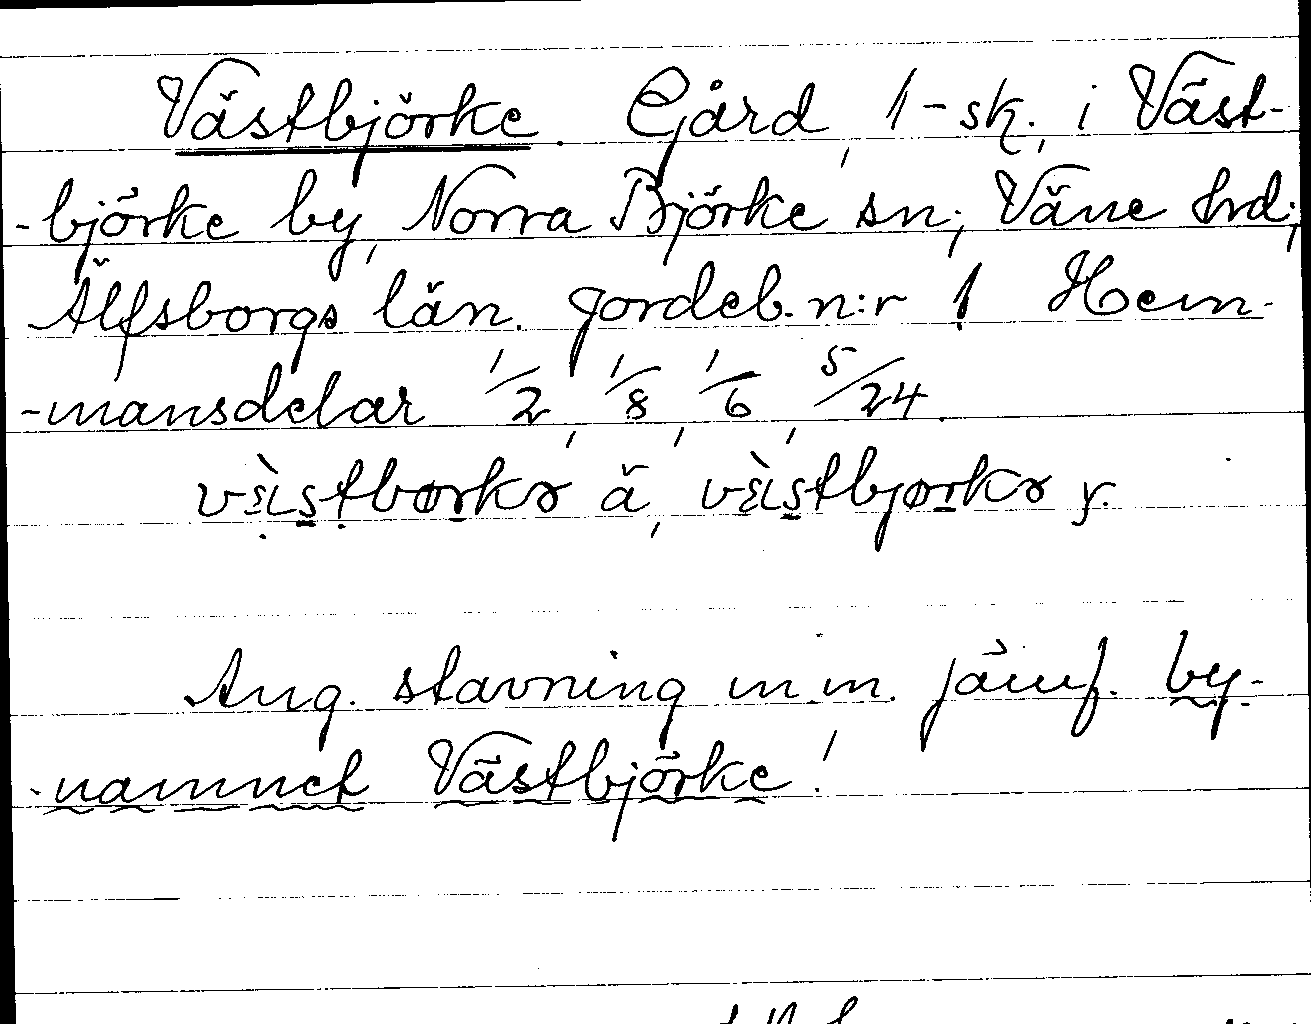 Västbjörke. Gård, 1-sk., i Väst-
-björke by, Norra Björke sn., Väne hrd.,
Älfsborgs län. Jordeb. n:r 1. Hem-
-mansdelar 1/2, 1/8, 1/6, 5/24.
ä, y.
Ang. stavning m. m. jämf. by-
-namnet Västbjörke!